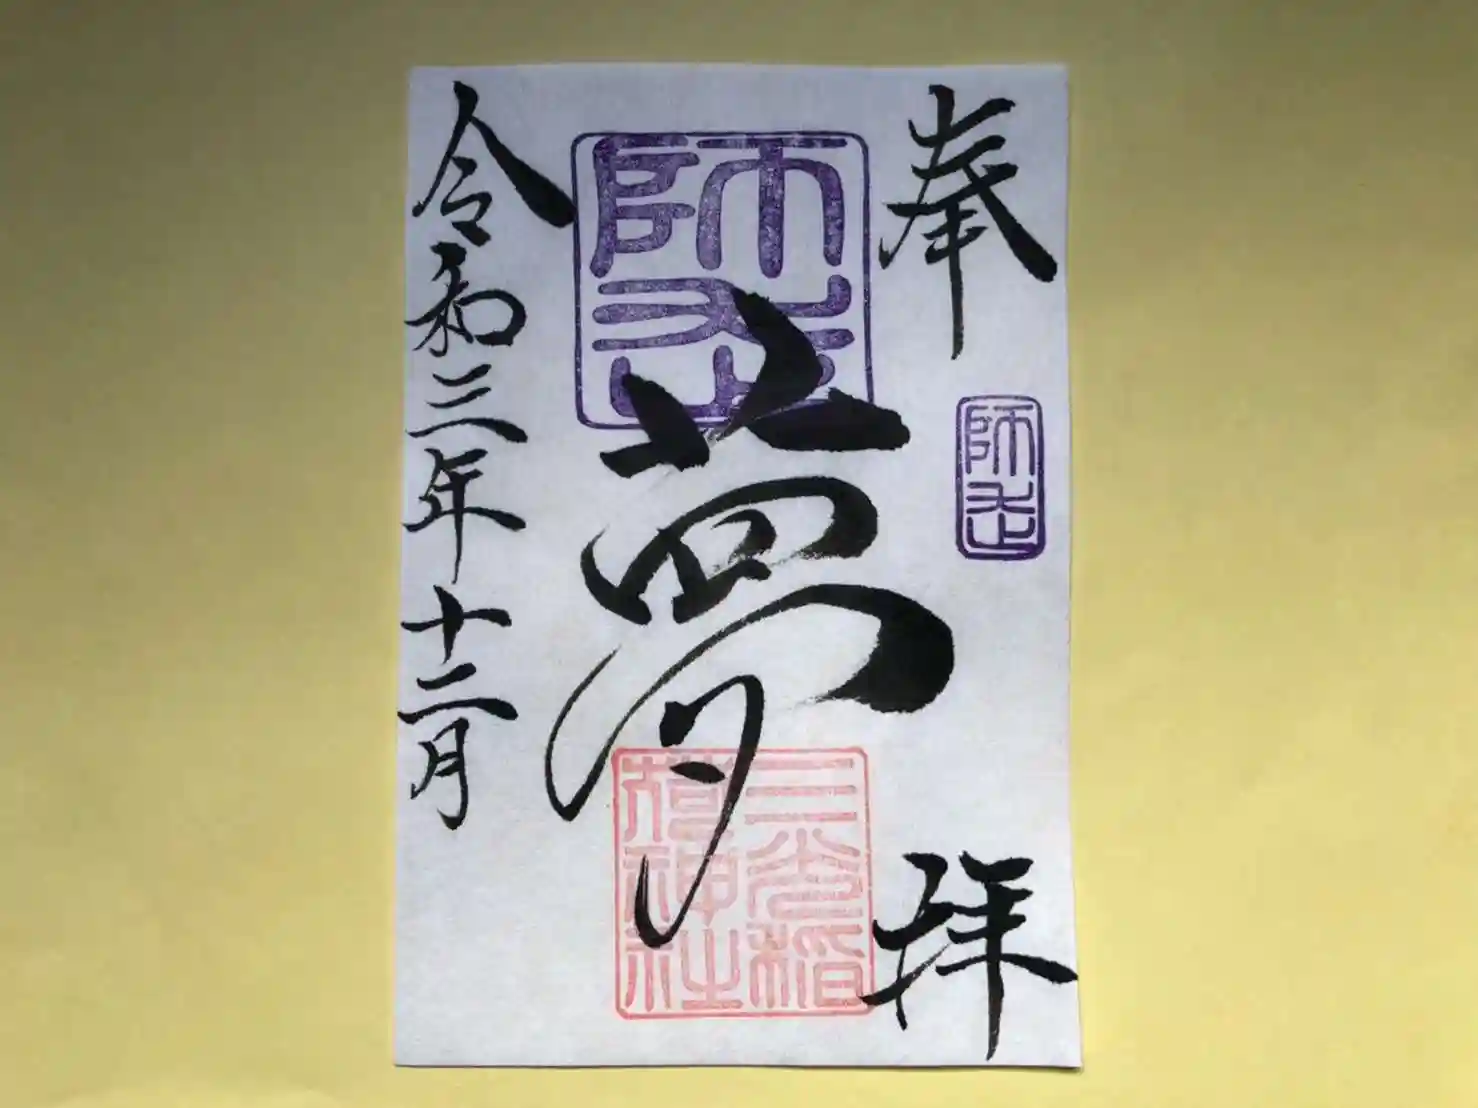 奉
師走
拝
師走
夢
三光稲
荷神社
令和三年十二月